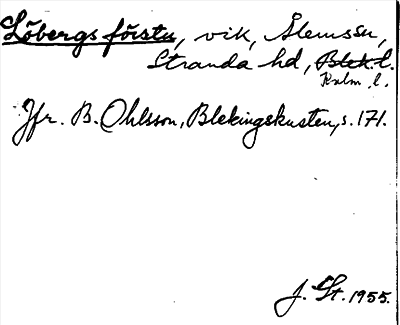 Löbergs första, vik, Ålemssn,
Stranda hd, Blek. l.
Kalm. l.
Jfr. B. Ohlsson, Blekingskusten, s. 171.
J. St. 1955.